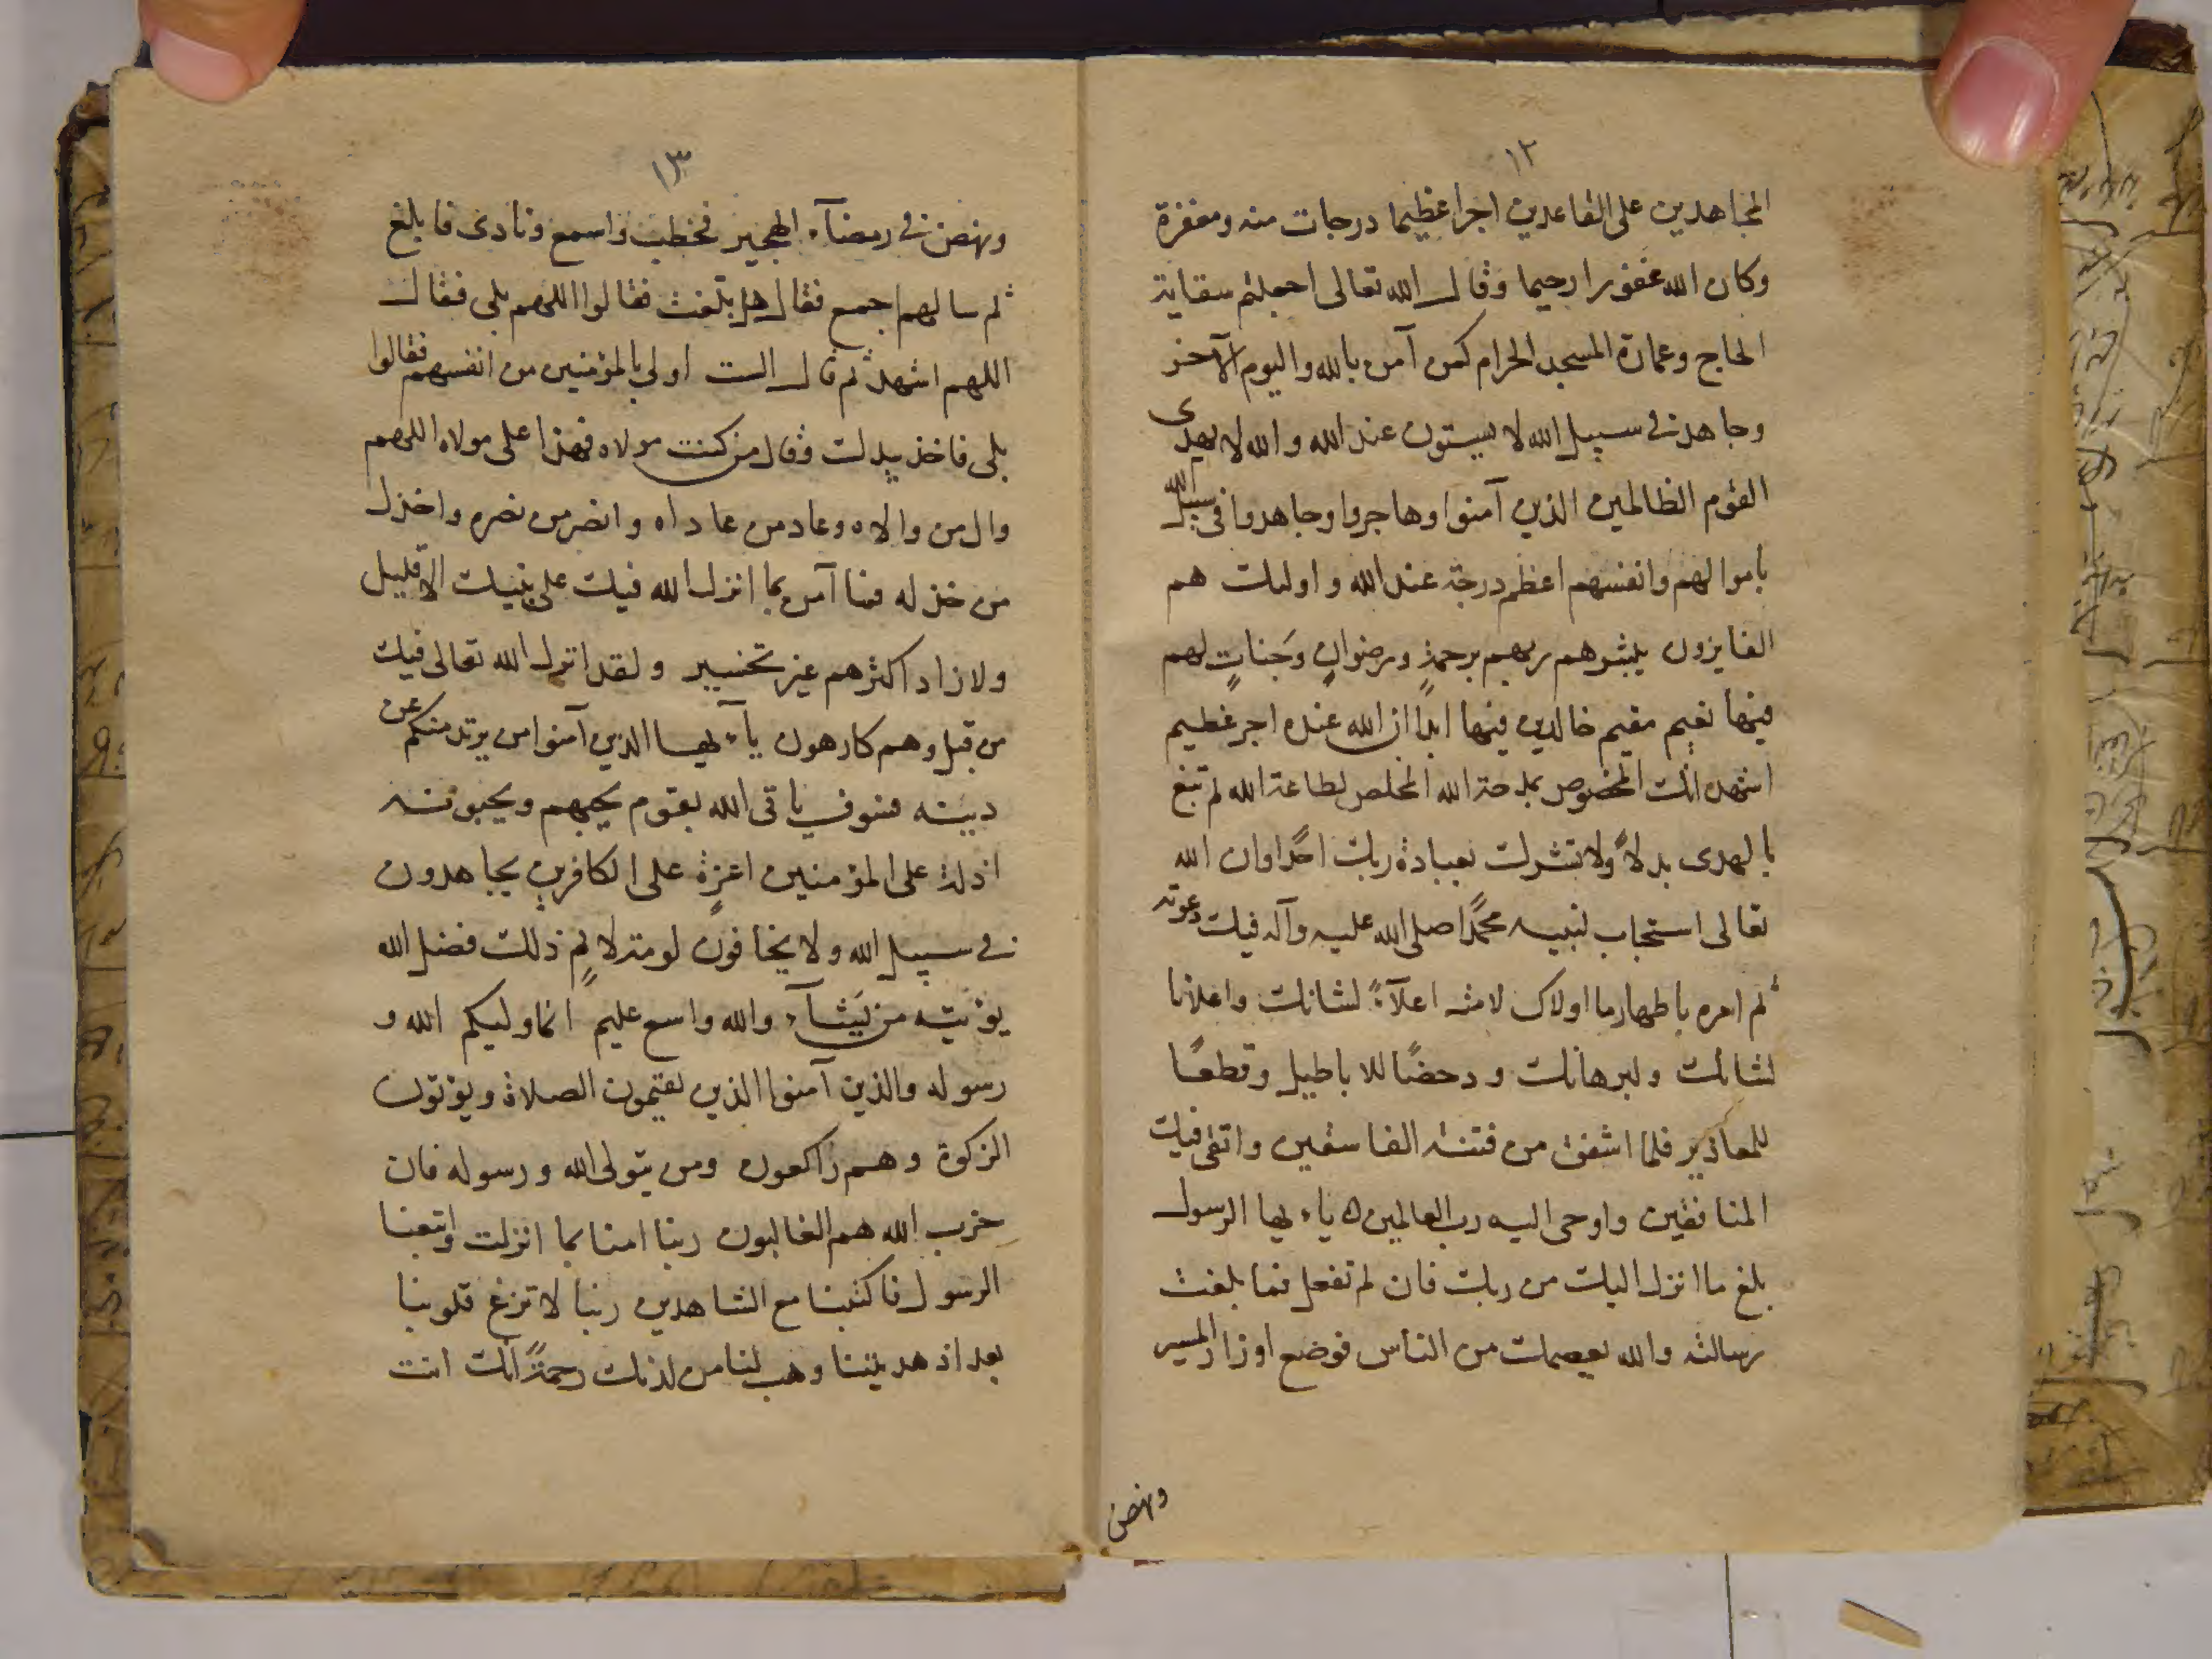 ١٢
المجاهدين على القاعدين اجرا عظيما درجات منه ومغفرة
وكان الله غفورا رحيما وقال الله تعالى اجعلتم سقاية
الحاج وعمارة المسجد الحرام كمن آمن بالله واليوم الآخر
وجاهد في سبيل الله لا يستون عند الله والله لا يهدى
القوم الظالمين الذين آمنوا وهاجروا وجاهدوا فى سبيل الله
باموالهم وانفسهم اعظم درجة عند الله واولىك هم
الفايزون يبشرهم ربهم برحمةٍ ورضوانٍ وَجناتٍ لهم
فيها نعيم مقيم خالدين فيها ابدًا ان الله عنده اجر عظيم
اشهد انك المخصوص بمدحة الله المخلص لطاعة الله لم تبغ
بالهدى بدلاً ولا تشرك بعبادة ربك احدًا وان الله
تعالى استجاب لنبيه محمدًا صلى الله عليه وآله فيك دعوته
ثم امره باظهار ما اولاك لامته اعلآءً لشانك واعلانا
لشانك ولبرهانك ودحضًا للاباطيل وقطعًا
للمعاذير فلما اشفق من فتنة الفاسقين واتقى فيك
المنافقين واوحى اليه رب العالمين ه ياءيها الرسول
بلغ ما انزل اليك من ربك فان لم تفعل فما بلغت
رسالته والله يعصمك من الناس فوضع اوزار المسير
ونهض
١٣
ونهض في رمضآء الهجير فخطب واسمع ونادى فابلغ
ثم سالهم اجمع فقال هل بلّغت فقالوا اللهم بلى فقال
اللهم اشهد ثم قال الست اولى بالمؤمنين من انفسهم فقالوا
بلى فاخذ بيدك وقال من كنت مولاه فهذا على مولاه اللهم
وال من والاه وعاد من عاداه وانصر من نصره واخذل
من خذله فما آمن بما انزل الله فيك على نبيك الا قليل
ولا زاد اكثرهم غير تخسير ولقد انزل الله تعالى فيك
من قبل وهم كارهون يآءيها الذين آمنوا من يرتد منكم عن
دينه فسوف ياتى الله بقوم يحبهم ويحبونه
اذلة على المؤمنين اعزةٍ على الكافرين يجاهدون
في سبيل الله ولا يخافون لومة لايمٍ ذلك فضل الله
يؤتيه من يَشآء والله واسع عليم انما وليكم الله و
رسوله والذين آمنوا الذين يقيمون الصلاة ويؤتون
الزكوة وهم راكعون ومن يتولى الله ورسوله فان
حزب الله هم الغالبون ربنا امنا بما انزلت واتبعنا
الرسول فاكتبنا مع الشاهدين ربنا لا تزغ قلوبنا
بعد اذ هديتنا وهب لنا من لدنك رحمةً انك انت